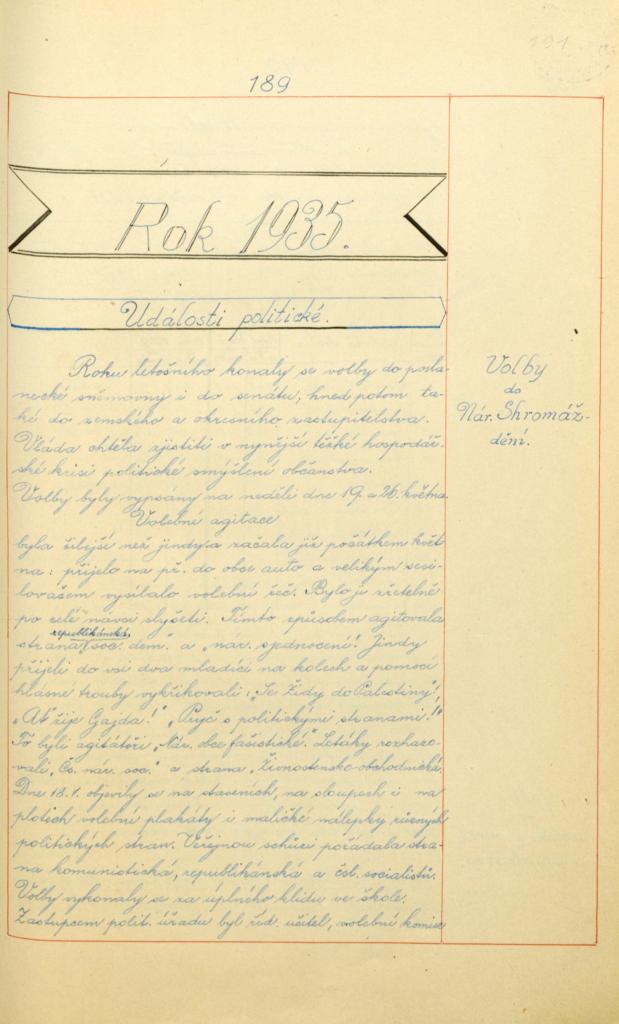 191
189
Rok 1935.
Události politické.
Volby
do
Nár. Shromáž-
dění.
Roku letošního konaly se volby do posla-
necké sněmovny i do senátu, hned potom ta-
ké do zemského a okresního zastupitelstva.
Vláda chtěla zjistiti v nynější těžké hospodář-
ské krisi politické smýšlení občanstva.
Volby byly vypsány na neděli dne 19. a 26. května.
Volební agitace
byla čilejší než jindy a začala již počátkem květ-
na: přijelo na př. do obce auto a velikým sesi-
lovačem vysílalo volební řeč. Bylo ji zřetelně
po celé návsi slyšeti. Tímto způsobem agitovala
strana republikánská, „soc. dem.“ a „nár. sjednocení“. Jindy
přijeli do vsi dva mladíci na kolech a pomocí
hlásné trouby vykřikovali: „Že Židy do Palestiny“!
„Ať žije Gajda!“ „Pryč s politickými stranami!“
To byli agitátoři „Nár. obce fašistické“. Letáky rozhazo-
vali „Čs. nár. soc.“ a strana „Živnostensko-obchodnická.
Dne 18. objevily se na staveních, na sloupech i na
plotech volební plakáty i maličké nálepky různých
politických stran. Veřejnou schůzi pořádala stra-
na komunistická, republikánská a čsl. socialistů.
Volby vykonaly se za úplného klidu ve škole.
Zástupcem polit. úřadu byl říd. učitel, volební komise